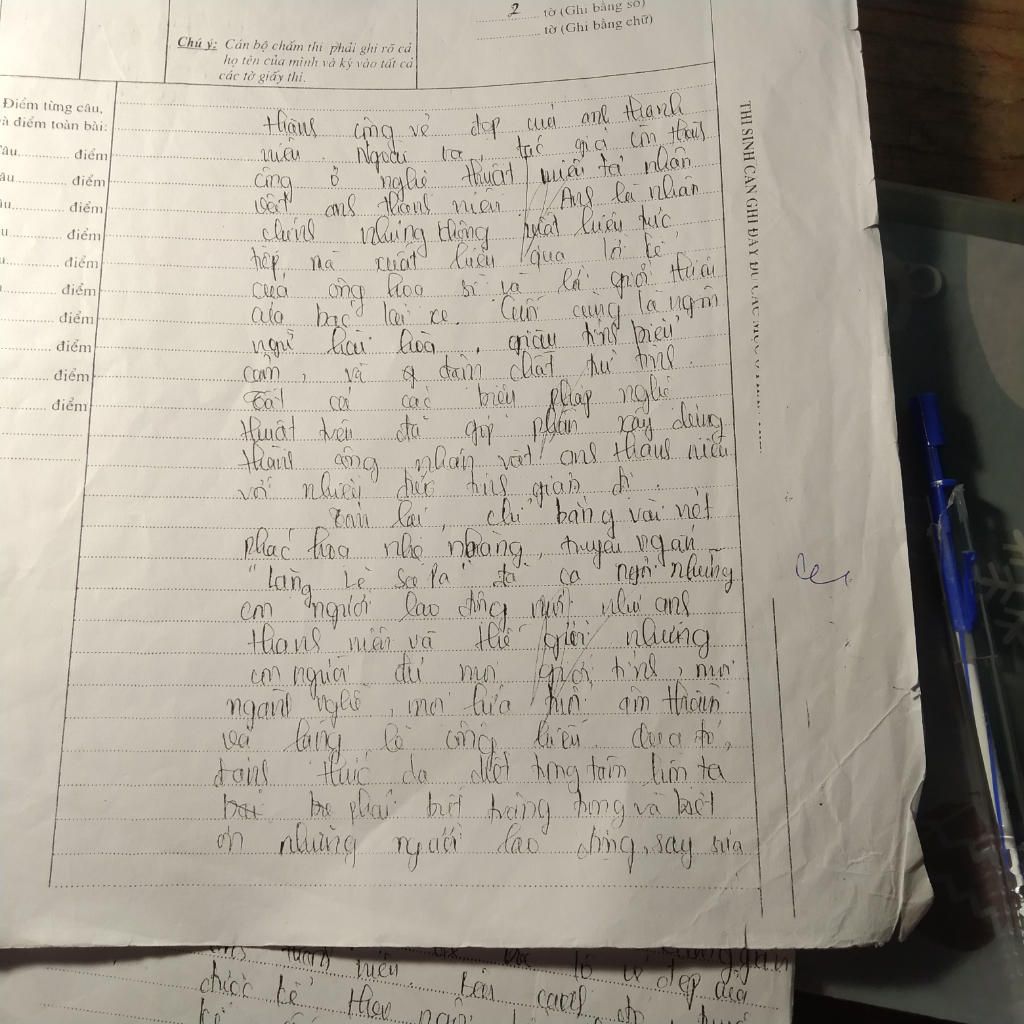 2 tờ (Ghi bằng số)
tờ (Ghi bằng chữ)
Chú ý: Cán bộ chấm thi phải ghi rõ cả
họ tên của mình và ký vào tất cả
các tờ giấy thi.
Điểm từng câu,
à điểm toàn bài:
âu............ điểm
âu............ điểm
u............ điểm
u............ điểm
............ điểm
............ điểm
............ điểm
............ điểm
............ điểm
............ điểm
THÍ SINH CẦN GHI ĐẦY ĐỦ CÁC MỤC Ở
thành công vẻ đẹp của anh thanh
niên. Ngoài ra, tác giả còn thành
công ở nghệ thuật miêu tả nhân
vật anh thanh niên. Anh là nhân
chính nhưng không xuất hiện trực
tiếp mà xuất hiện qua lời kể
của ông hoạ sĩ và lời giới thiệu
của bác lái xe. Cuối cùng là ngôn
ngữ hài hoà, giàu tính biểu
cảm, và đậm chất trữ tình.
Tất cả các biện pháp nghệ
thuật trên đã góp phần xây dựng
thành công nhân vật anh thanh niên
với nhiều đức tính giản dị.
Tóm lại, chỉ bằng vài nét
phác hoạ nhẹ nhàng, truyện ngắn
"Lặng Lẽ Sa Pa" đã ca ngợi những
con người lao động mới như anh
thanh niên và thế giới những
con người đủ mọi giới tính, mọi
ngành nghề, mọi lứa tuổi âm thầm
và lặng lẽ cống hiến. Qua đó,
đánh thức da diết trong tâm hồn ta
phải biết trân trọng và biết
ơn những người lao động, say sưa
anh thanh niên. vẻ đẹp của
được kể theo